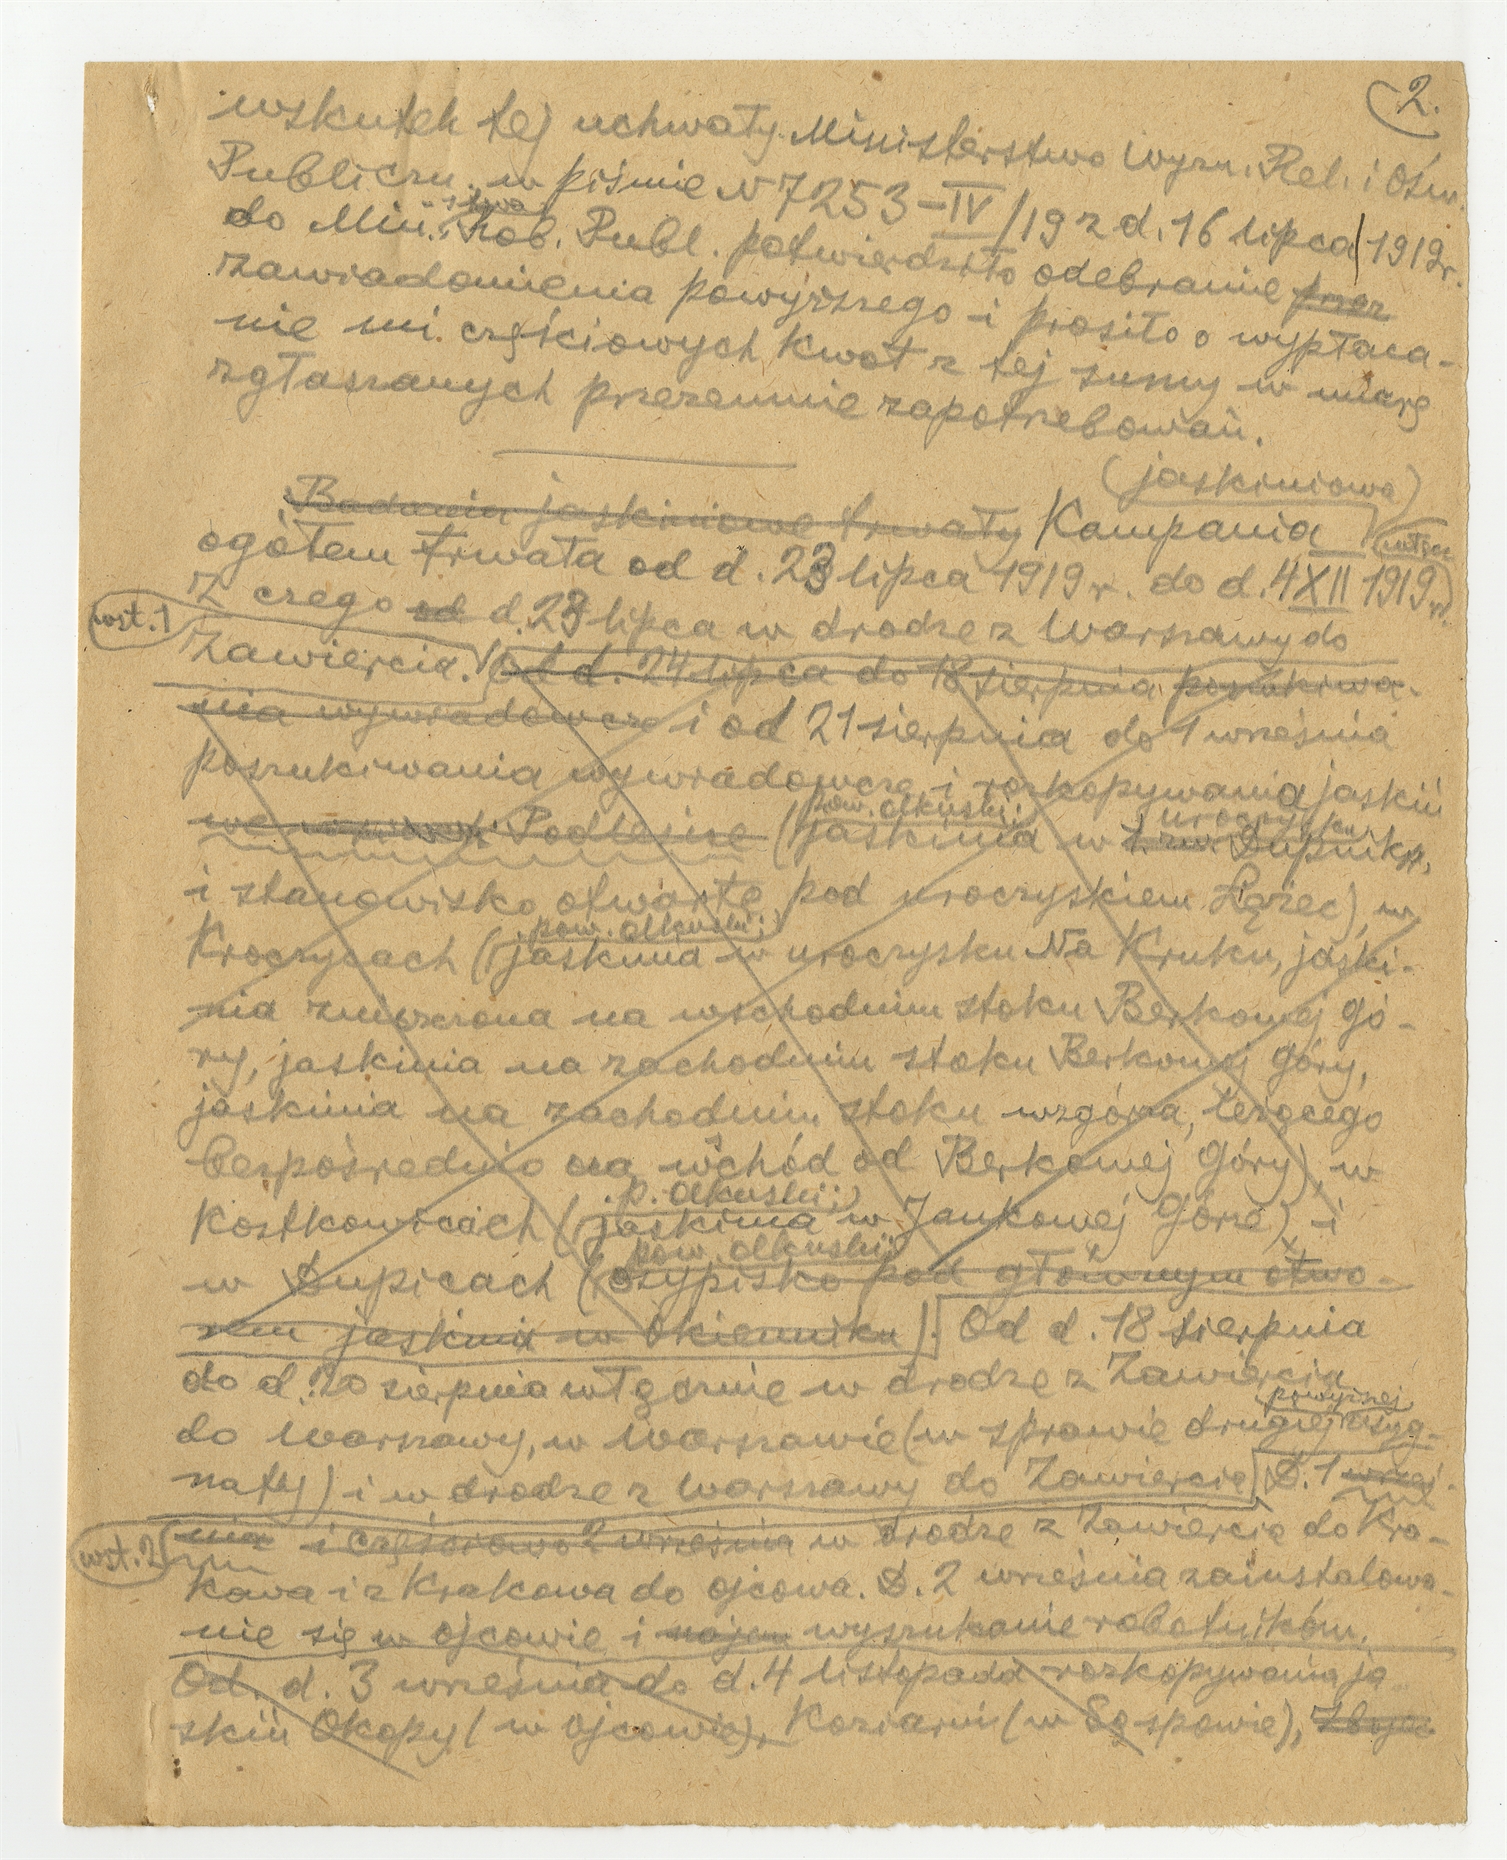 2.
wskutek tej uchwały Ministerstwo Wyzn. Rel. i Ośw.
Publiczn., w piśmie N 7253-IV/19 z d. 16 lipca 1919 r.
do Min. -stwa Rob. Publ. potwierdziło odebranie przez
zawiadomienia powyższego i prosiło o wypłaca-
nie mi częściowych kwot z tej sumy w miarę
zgłaszanych przezemnie zapotrzebowań.
(jaskiniowa)
Badania jaskiniowe trwały Kampania
ogółem trwała od d. 23 lipca 1919 r. do d. 4 XII 1919 r.
Z czego od d. 23 lipca w drodze z Warszawy do
wst. 1
Zawiercia. Od d. 24 lipca do 18 sierpnia poszukiwa-
nia wywiadowcze i od 21 sierpnia do 1 września
poszukiwania wywiadowcze i rozkopywania jaskiń
we Podlesice (pow. olkuski; jaskinia w t. zw. uroczysku Słupnik,
i stanowisko otwarte pod uroczyskiem Łężec), w
Kroczycach (pow. olkuski; jaskinia w uroczysku Na Kruku, jaski-
nia zniszczona na wschodnim stoku Berkowej Gó-
ry, jaskinia na zachodnim stoku Berkowej Góry,
jaskinia na zachodnim stoku wzgórza, leżącego
bezpośrednio na wschód od Berkowej Góry), w
Kostkowicach (p. olkuski; jaskinia w Jankowej Górze) i
w Słupicach (pow. olkuski; osypisko pod głównym otwo-
rem jaskini w Okienniku). Od d. 18 sierpnia
do d. 20 sierpnia włącznie w drodze z Zawiercia
do Warszawy, w Warszawie (w sprawie drugiej powyższej asyg-
naty) i w drodze z Warszawy do Zawiercia. D. 1 wrześ-
wst. 2
nia i częściowo 2 września w drodze z Zawiercia do Kra-
kowa i z Krakowa do Ojcowa. D. 2 września zainstalowa-
nie się w Ojcowie i najem wyszukanie robotników.
Od. d. 3 września do d. 4 listopada rozkopywania ja-
skiń Okopy (w Ojcowie), Koziarni (w Sąspowie), Zbójec-